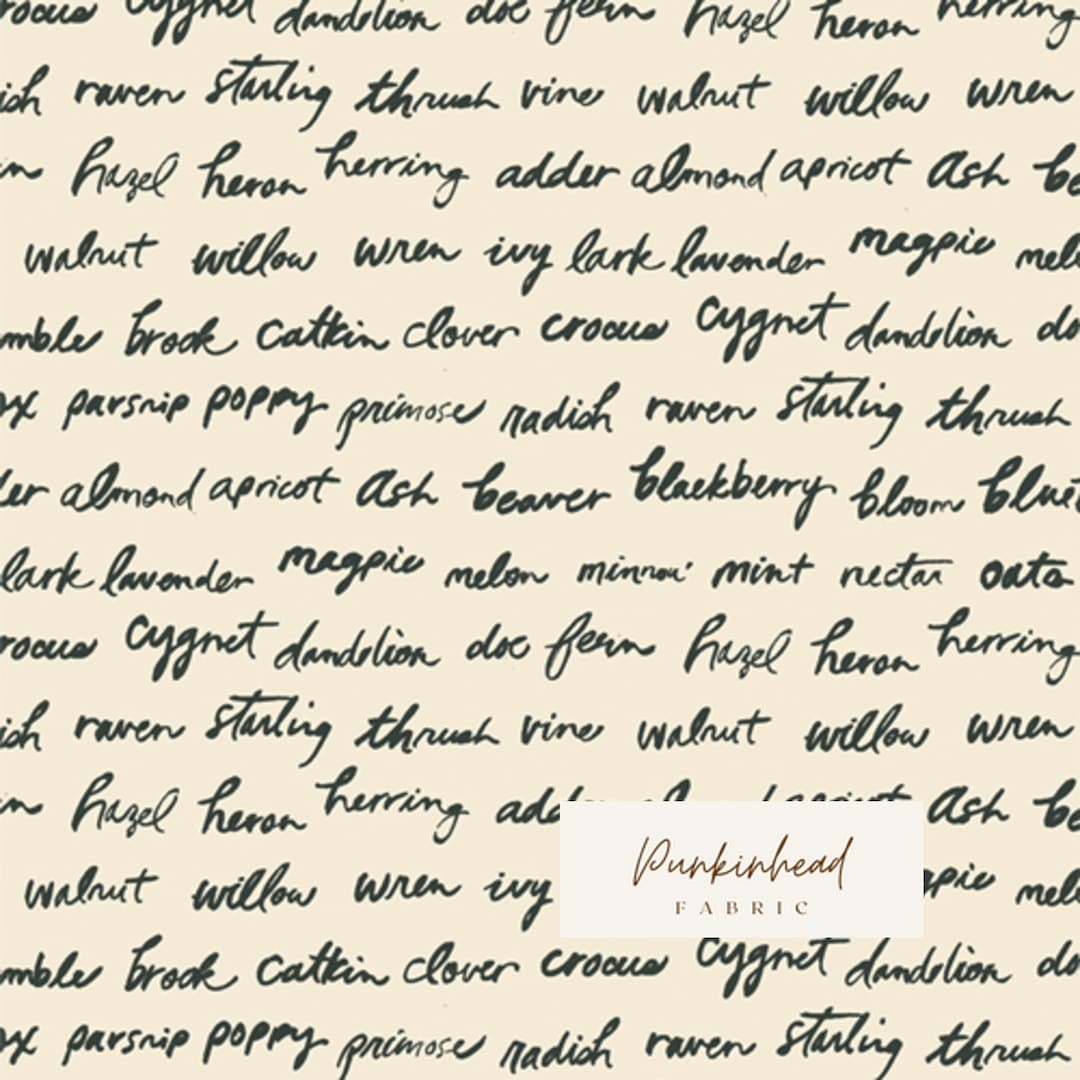 rocus cygnet dandelion doe fern hazel heron herring
ish raven starling thrush vine walnut willow wren
rn hazel heron herring adder almond apricot ash be
walnut willow wren ivy lark lavender magpie mel
mble brook catkin clover crocus cygnet dandelion do
ox parsnip poppy primose radish raven starling thrush
der almond apricot ash beaver blackberry bloom blue
lark lavender magpie melon minnow mint nectar oats
rocus cygnet dandelion doe fern hazel heron herring
ish raven starling thrush vine walnut willow wren
rn hazel heron herring add ash be
walnut willow wren ivy gpie mel
Punkinhead
FABRIC
mble brook catkin clover crocus cygnet dandelion do
ox parsnip poppy primose radish raven starling thrush